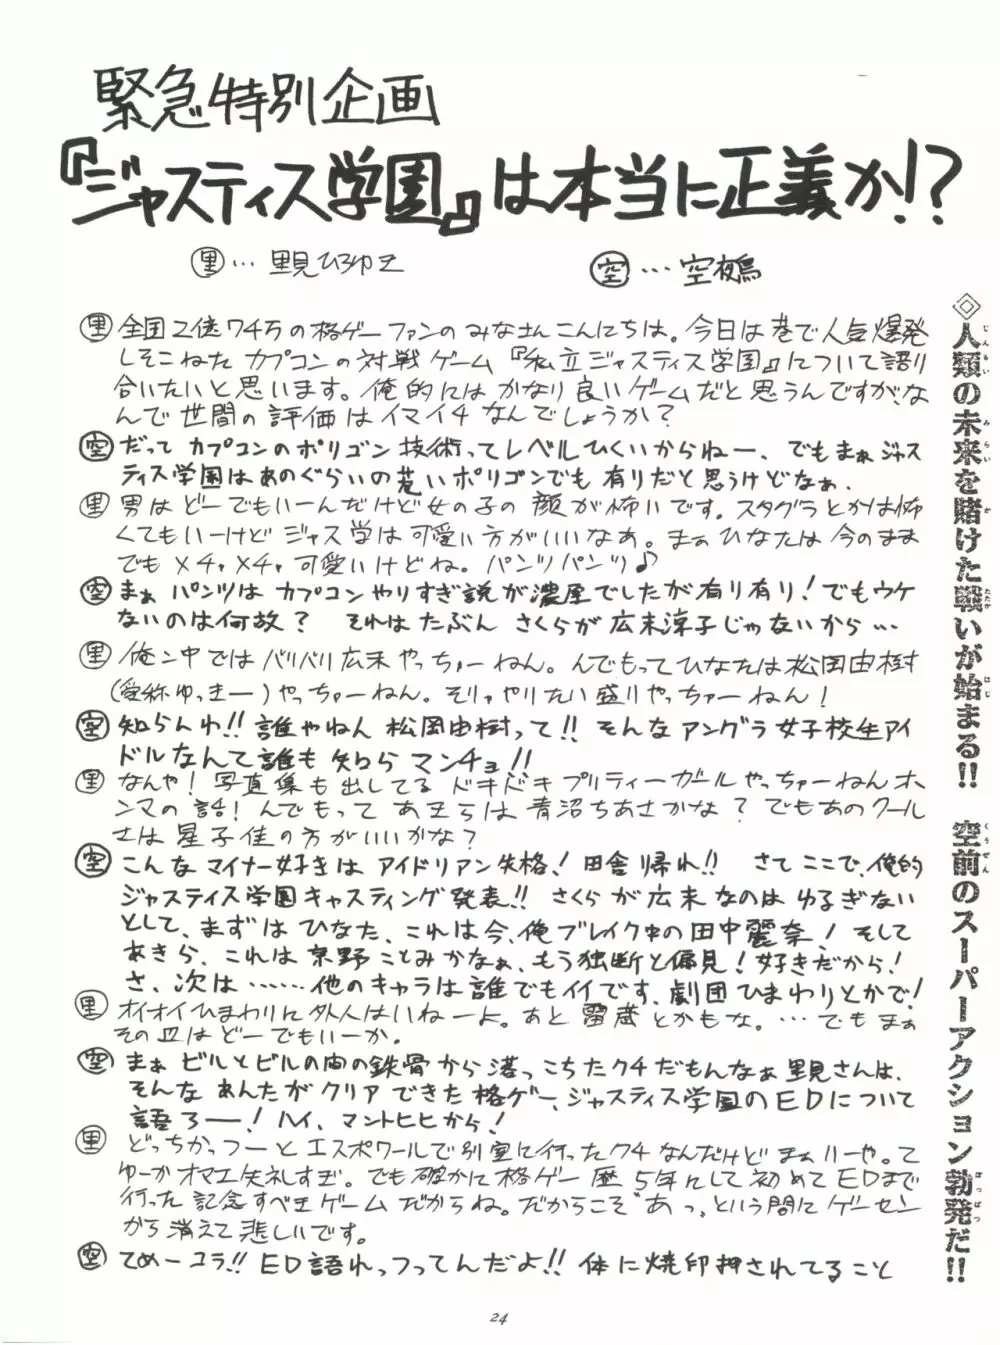 緊急特別企画
『ジャスティス学園』は本当に正義か!?
里…里見ひろゆき
空…空夜鳥
里 全国2億74万の格ゲーファンのみなさんこんにちは。今日は巷で人気爆発
しそこねた カプコンの対戦ゲーム『私立ジャスティス学園』について語り
合いたいと思います。俺的にはかなり良いゲームだと思うんですが、な
んで世間の評価はイマイチなんでしょうか?
空 だって カプコンのポリゴン技術ってレベルひくいからねー、でもまぁジャス
ティス学園はあのぐらいの荒いポリゴンでも有りだと思うけどなぁ、
里 男はどーでもいーんだけど女の子の顔が怖いです。スタグラとかは怖
くてもいーけどジャス学は可愛い方がいいなあ。まぁひなたは今のまま
でもメチャメチャ可愛いけどね。パンツパンツ♪
空 まぁ パンツは カプコンやりすぎ説が濃厚でしたが有り有り!でもウケ
ないのは何故? それはたぶん さくらが広末涼子じゃないから…
里 俺ン中ではバリバリ広末やっちゅーねん。んでもってひなたは松岡由樹
(愛称ゆっきー)やっちゅーねん。そりゃやりたい盛りやっちゅーねん!
空 知らんわ!!誰やねん 松岡由樹って!! そんなアングラ女子校生アイ
ドルなんて誰も知らマンチョ!!
里 なんや!写真集も出してるドキドキプリティーガールやっちゅーねんホ
ンマの話!んでもって あきらは青沼ちあさかな?でもあのクール
さは星子佳の方がいいかな?
空 こんなマイナー好きはアイドリアン失格!田舎帰れ!! さてここで、俺的
ジャスティス学園キャスティング発表!! さくらが広末なのはゆるぎない
として、まずはひなた、これは今、俺ブレイク中の田中麗奈!そして
あきら、これは京野ことみかなぁ、もう独断と偏見!好きだから!
さ、次は……他のキャラは誰でもイイです、劇団ひまわりとかで!
里 オイオイひまわりに外人はいねーよ。あと雷蔵とかもな。…でもまぁ
その辺はどーでもいーか。
空 まぁ ビルとビルの間の鉄骨から落っこちたクチだもんなぁ里見さんは、
そんなあんたがクリアできた格ゲー、ジャスティス学園のEDについて
語ろー!ハイ、マントヒヒから!
里 どっちかっつーとエスポワールで別室に行ったクチなんだけどまぁいーや。て
ゆーかオマエ失礼すぎ。でも確かに格ゲー歴5年にして初めてEDまで
行った記念すべきゲームだからね。だからこそ"あっ、という間にゲーセン
から消えて悲しいです。
空 てめーコラ!!ED語れっつってんだよ!!体に焼印押されてること
◇人類の未来を賭けた戦いが始まる!! 空前のスーパーアクション勃発だ!!
じんるい みらい か たたか はじ くうぜん ぼっぱつ
24